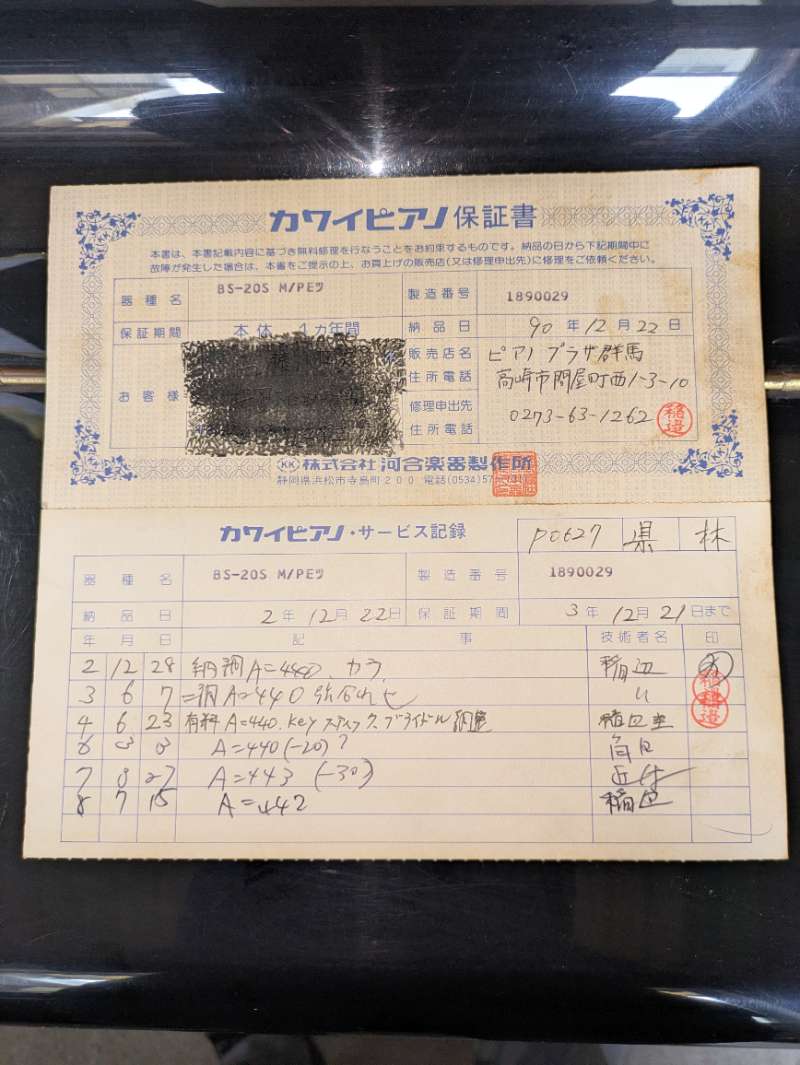 カワイピアノ 保証書
本書は、本書記載内容に基づき無料修理を行なうことをお約束するものです。納品の日から下記期間中に
故障が発生した場合は、本書をご提示の上、お買上げの販売店(又は修理申出先)に修理をご依頼ください。
器種名 BS-20S M/PEツ 製造番号 1890029
保証期間 本体 1ヵ年間 納品日 90年12月22日
お客様 様
販売店名 ピアノプラザ群馬
住所電話 高崎市問屋町西1-3-10
修理申出先
住所電話 0273-63-1262 稲邉
KK 株式会社 河合楽器製作所
静岡県浜松市寺島町200 電話(0534)57-
カワイピアノ・サービス記録 P0627 県 林
器種名 BS-20S M/PEツ 製造番号 1890029
納品日 2年12月22日 保証期間 3年12月21日まで
年 月 日 記事 技術者名 印
2 12 28 納調A=440. カラ 稲辺
3 6 7 二調A=440 〃
4 6 23 有料 A=440. Key スティック、ブライドル調整
6 A=440(-20)?
7 8 27 A=443 (-30)
8 7 15 A=442 稲辺